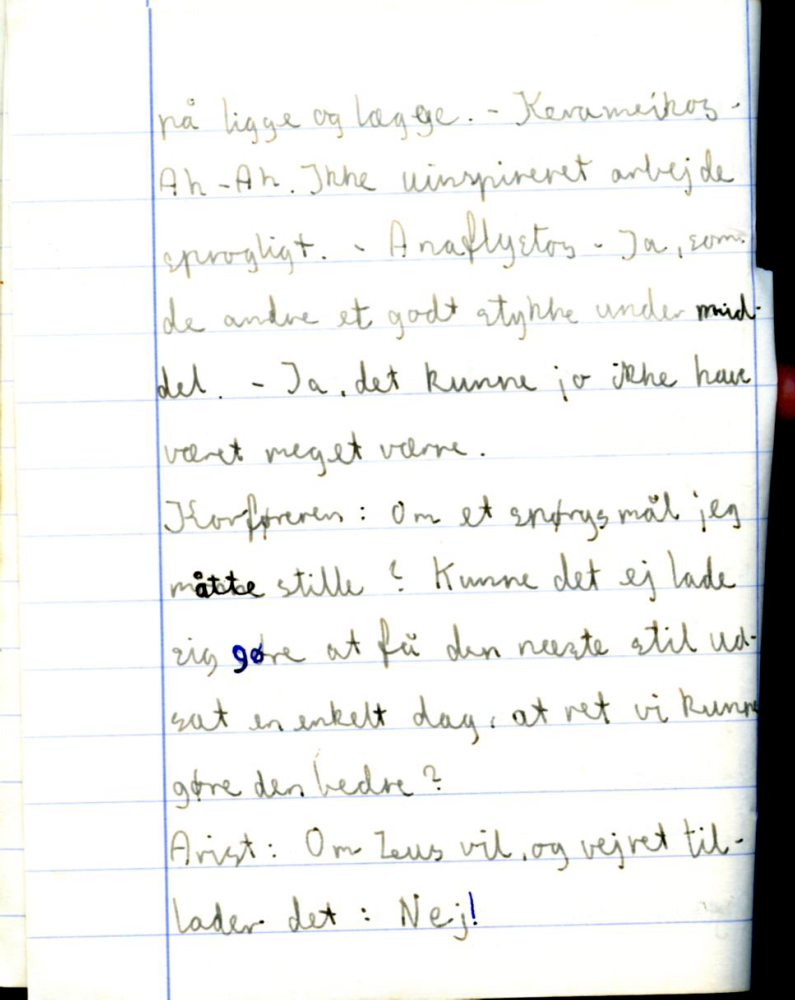 på ligge og lægge. - Kerameikos -
Ah - Ah. Ikke uinspireret arbejde
sprogligt. - Anaflystos - Ja, som
de andre et godt stykke under mid-
del. - Ja, det kunne jo ikke have
været meget værre.
Korføreren : Om et spørgsmål jeg
måtte stille ? Kunne det ej lade
sig gøre at få den næste stil ud-
sat en enkelt dag, at ret vi kunne
gøre den bedre ?
Arist : Om Zeus vil, og vejret til-
lader det : Nej!